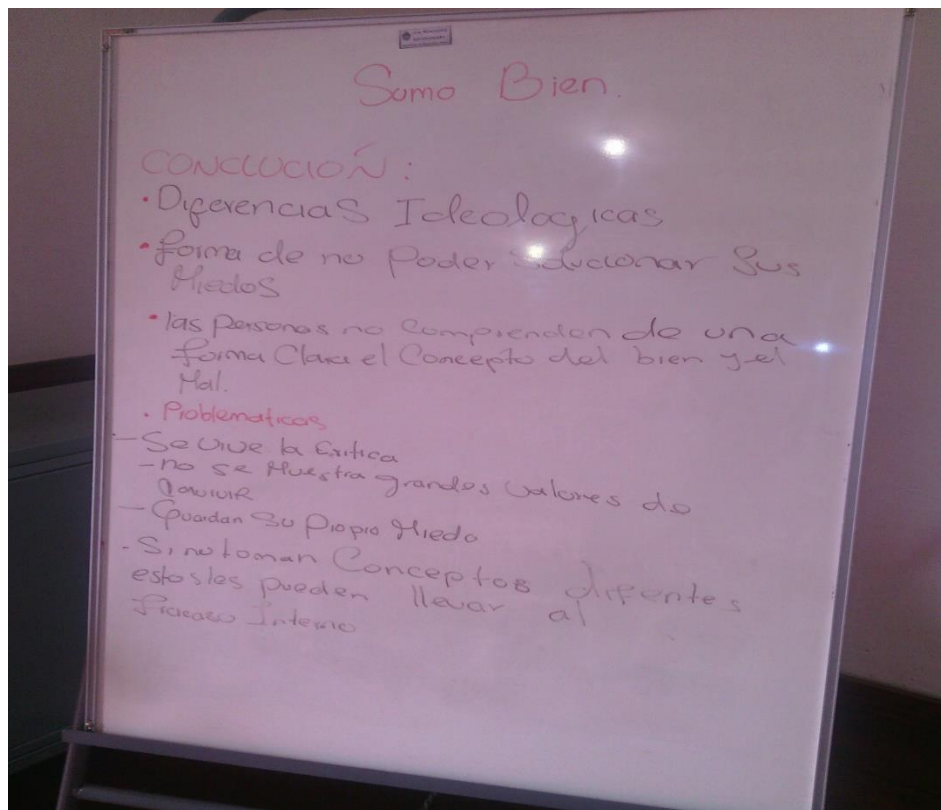 Sumo Bien.
CONCLUCIÓN:
• Diferencias Ideologicas
• forma de no Poder solucionar Sus
Miedos
• las Personas no Comprenden de una
forma Clara el Concepto del bien y el
Mal.
• Problematicas
- Se vive la Critica
- no se Muestra grandes valores de
convivir
- Guardan Su Propio Miedo
- Si no toman Conceptos difentes
estos les pueden llevar al
fracaso Interno